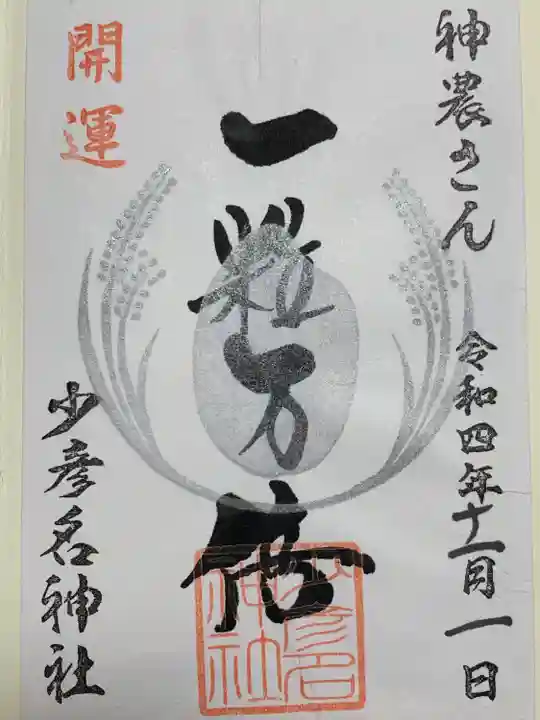 神農さん
令和四年十一月一日
一粒万倍
開運
少彦名神社
少彦名
神社